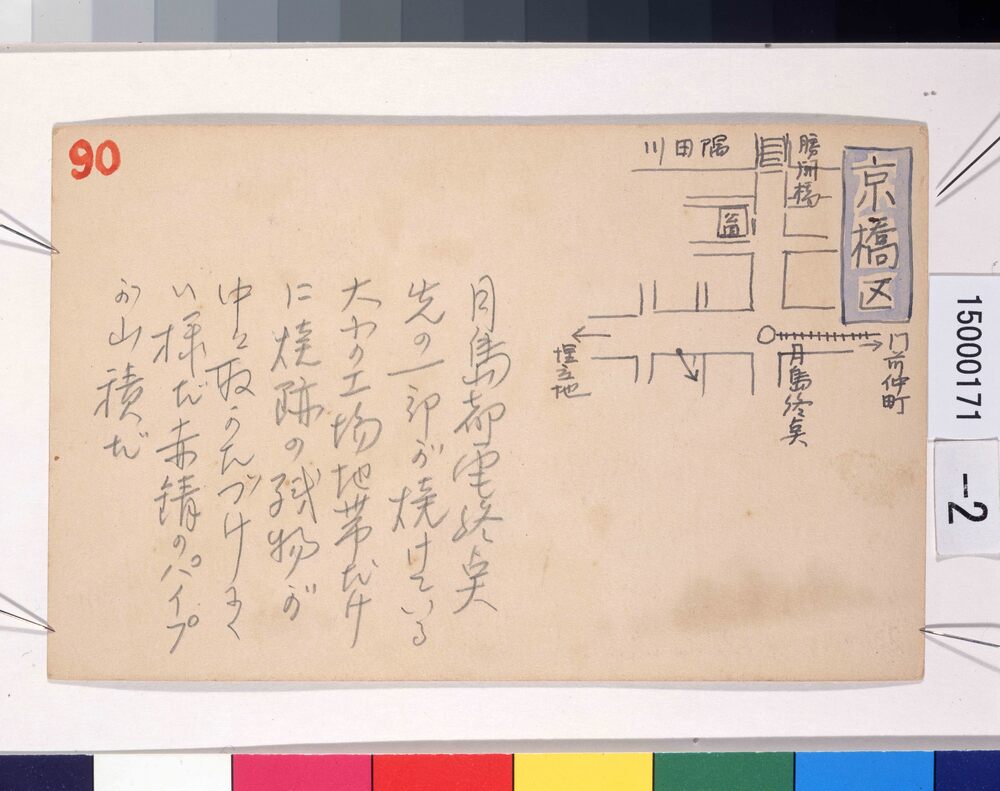 90
京橋区
勝鬨橋
川田隅
門前仲町
月島終点
埋立地
月島都電終点
先の一部が焼けている
大かの工場地帯だけ
に焼跡の残物が
中々取かたづけにく
い様だ赤錆のパイプ
が山積だ
15000171
-2